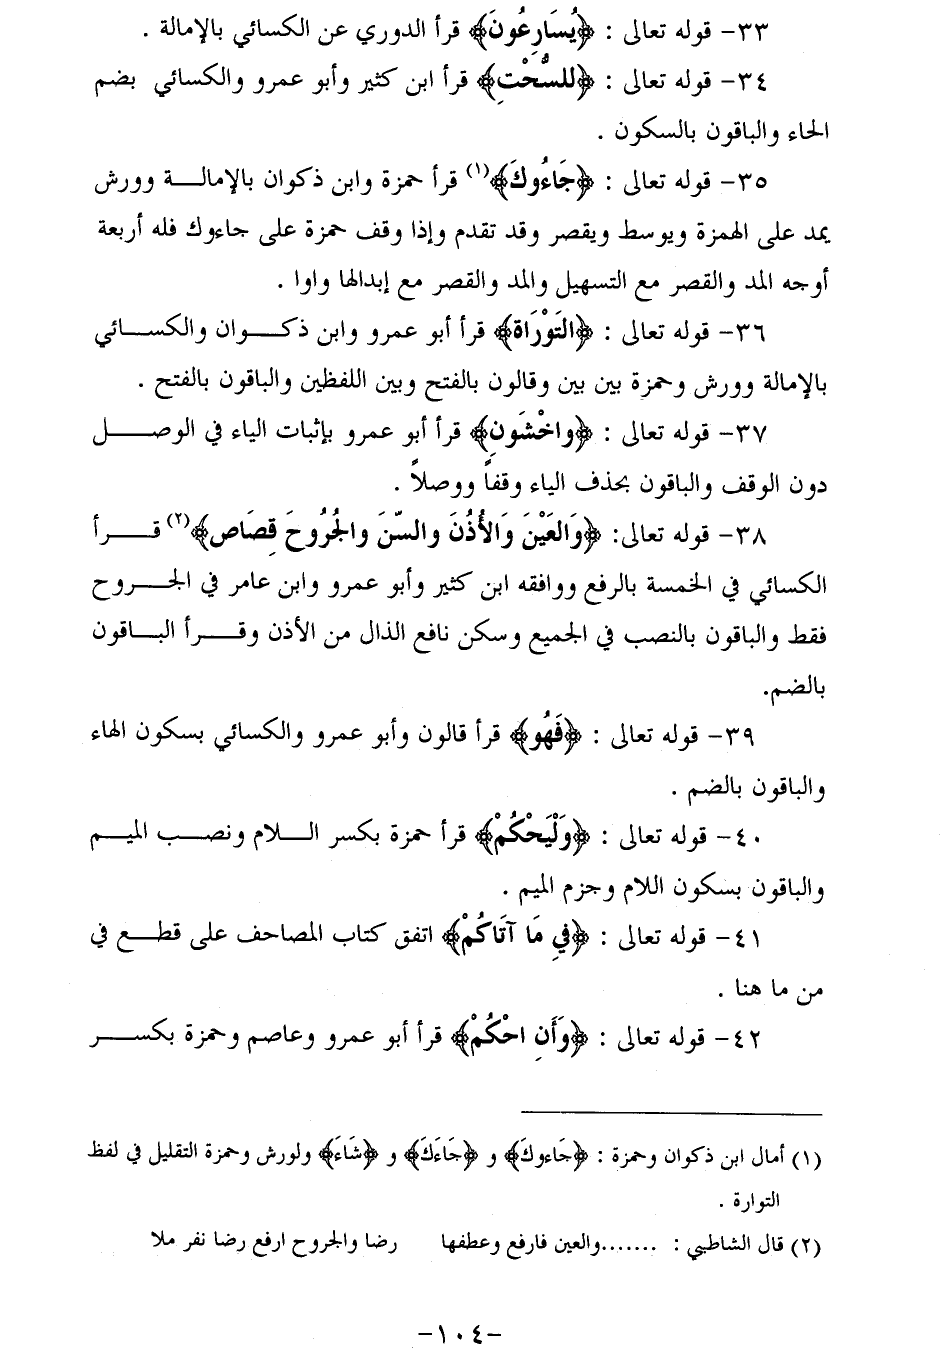 ٣٣- قوله تعالى : ﴿يُسَارِعُونَ﴾ قرأ الدوري عن الكسائي بالإمالة .
٣٤- قوله تعالى : ﴿للسُّحْتِ﴾ قرأ ابن كثير وأبو عمرو والكسائي بضم
الحاء والباقون بالسكون .
٣٥- قوله تعالى : ﴿جَاءُوكَ﴾(١) قرأ حمزة وابن ذكوان بالإمالــة وورش
يمد على الهمزة ويوسط ويقصر وقد تقدم وإذا وقف حمزة على جاءوك فله أربعة
أوجه المد والقصر مع التسهيل والمد والقصر مع إبدالها واوا .
٣٦- قوله تعالى : ﴿التَوْرَاة﴾ قرأ أبو عمرو وابن ذكـــوان والكســـائي
بالإمالة وورش وحمزة بين بين وقالون بالفتح وبين اللفظين والباقون بالفتح .
٣٧- قوله تعالى : ﴿واخْشَونِ﴾ قرأ أبو عمرو بإثبات الياء في الوصـــل
دون الوقف والباقون بحذف الياء وقفاً ووصلاً .
٣٨- قوله تعالى: ﴿وَالعَيْنَ وَالأُذُنَ والسّنَ والجُرُوحَ قِصَاص﴾(٢) قـــرأ
الكسائي في الخمسة بالرفع ووافقه ابن كثير وأبو عمرو وابن عامر في الجـــروح
فقط والباقون بالنصب في الجميع وسكن نافع الذال من الأذن وقـــرأ البــاقون
بالضم.
٣٩- قوله تعالى : ﴿فَهُو﴾ قرأ قالون وأبو عمرو والكسائي بسكون الهاء
والباقون بالضم .
٤٠- قوله تعالى : ﴿وَلْيَحْكُمْ﴾ قرأ حمزة بكسر الـــلام ونصــب الميــم
والباقون بسكون اللام وجزم الميم .
٤١- قوله تعالى : ﴿فِي مَا آتَاكُمْ﴾ اتفق كتاب المصاحف على قطــع في
من ما هنا .
٤٢- قوله تعالى : ﴿وَأَنِ احْكُمْ﴾ قرأ أبو عمرو وعاصم وحمزة بكســـر
(١) أمال ابن ذكوان وحمزة : ﴿جَاءوكَ﴾ و ﴿جَاءَكَ﴾ و ﴿شَاءَ﴾ ولورش وحمزة التقليل في لفظ
التوارة .
(٢) قال الشاطبي : .......والعين فارفع وعطفها رضا والجروح ارفع رضا نفر ملا
-١٠٤-